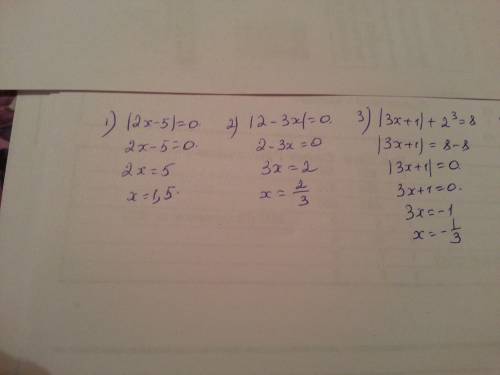 1) |2x-5|=0.
2x-5=0.
2x=5
x=1,5.
2) |2-3x|=0.
2-3x=0
3x=2
x=2/3
3) |3x+1|+2³=8
|3x+1|=8-8
|3x+1|=0.
3x+1=0.
3x=-1
x=-1/3